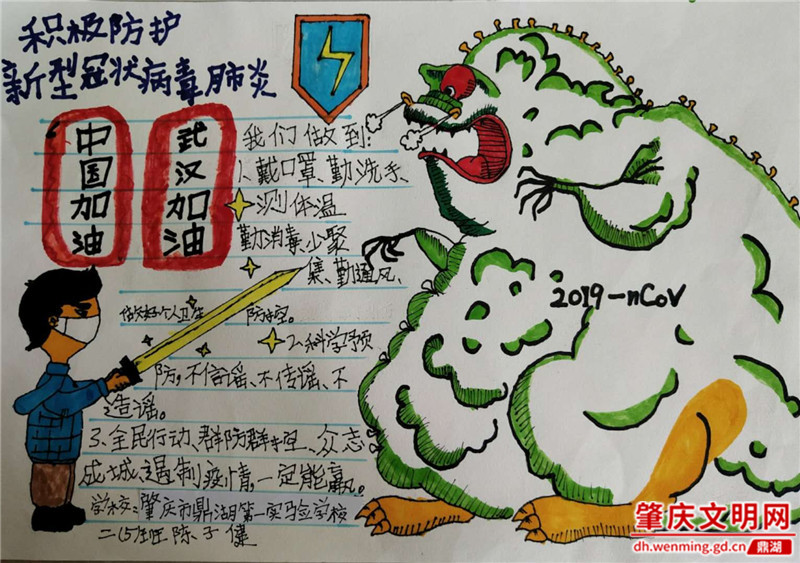 积极防护
新型冠状病毒肺炎
中国加油
武汉加油
我们做到:
1、戴口罩、勤洗手、
测体温
勤消毒少聚
集、勤通风、
做好个人卫生
防控。
2、科学预
防,不信谣、不传谣、不
造谣。
3、全民行动、群防群控、众志
成城,遏制疫情,一定能赢。
学校:肇庆市鼎湖第一实验学校
二(5)班 陈子健
2019-nCoV
肇庆文明网
dh.wenming.gd.cn 鼎湖